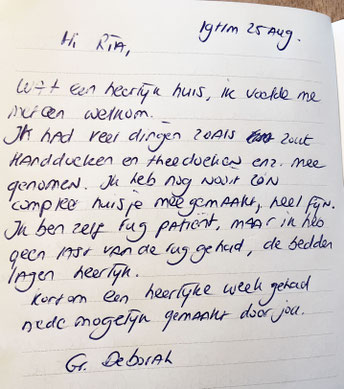 19 t/m 25 Aug.
Hi Ria,
Wat een heerlijk huis, ik voelde me
meteen welkom.
Ik had veel dingen zoals zout
handdoeken en theedoeken enz. mee
genomen. Ik heb nog nooit zo'n
compleet huisje meegemaakt, heel fijn.
Ik ben zelf rug patiënt, maar ik heb
geen last van de rug gehad, de bedden
lagen heerlijk.
Kortom een heerlijke week gehad
mede mogelijk gemaakt door jou.
Gr. Deborah